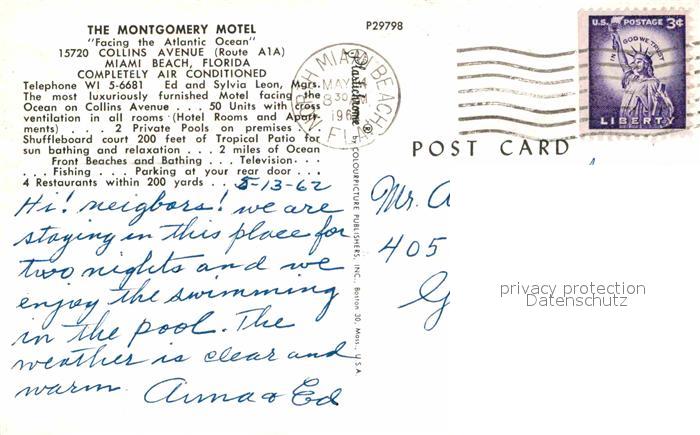 THE MONTGOMERY MOTEL
"Facing the Atlantic Ocean"
15720 COLLINS AVENUE (Route A1A)
MIAMI BEACH, FLORIDA
COMPLETELY AIR CONDITIONED
Telephone WI 5-6681 Ed and Sylvia Leon, Mgrs.
The most luxuriously furnished Motel facing the
Ocean on Collins Avenue . . . 50 Units with cross
ventilation in all rooms (Hotel Rooms and Apart-
ments) . . . 2 Private Pools on premises . . .
Shuffleboard court 200 feet of Tropical Patio for
sun bathing and relaxation . . . 2 miles of Ocean
Front Beaches and Bathing . . . Television . . .
. . . Fishing . . . Parking at your rear door . . .
4 Restaurants within 200 yards . . .
5-13-62
Hi! neigbors! we are
staying in this place for
two nights and we
enjoy the swimming
in the pool. The
weather is clear and
warm. Anna & Ed
P29798
MIAMI BEACH
MAY
830
196
FLA
Plastichrome ® by COLOURPICTURE PUBLISHERS, INC., Boston 30, Mass., U.S.A.
U.S. POSTAGE 3¢
IN GOD WE TRUST
LIBERTY
POST CARD
Mr. A
405
G
privacy protection
Datenschutz